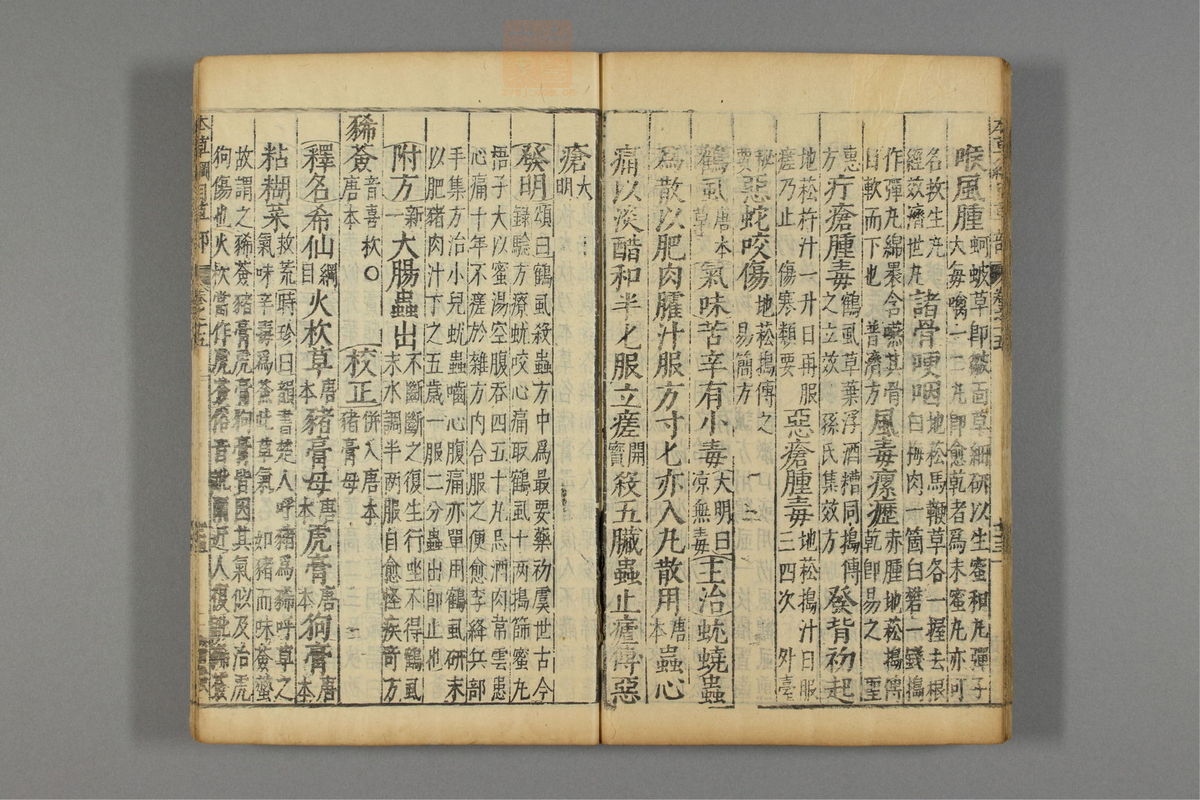 喉風腫 蚵蚾草即皺面草細研以生蜜和丸彈子
大每噙一二丸即愈乾者爲末蜜丸亦可
名救生丸 諸骨哽咽 地菘馬鞭草各一握去根
經效濟世丸 白梅肉一箇白礬一錢搗
作彈丸綿裹含嚥其骨
自軟而下也 普濟方 風毒瘰癧 赤腫地菘搗傅
乾即易之 聖
惠方 疔瘡腫毒 鶴虱草葉浮酒糟同搗傅
之立效 孫氏集效方 發背初起
地菘杵汁一升日再服
瘥乃止 傷寒類要 惡瘡腫毒 地菘搗汁日服
三四次 外臺
秘要 惡蛇咬傷 地菘搗傅之
易簡方
鶴虱 唐本草 氣味苦辛有小毒 大明曰
涼無毒 主治蚘蟯蟲
爲散以肥肉臛汁服方寸匕亦入丸散用 唐本 蟲心
痛以淡醋和半匕服立瘥 開寶 殺五臟蟲止瘧傅惡
瘡 大明
發明 頌曰鶴虱殺蟲方中爲最要藥初虞世古今
錄驗方療蚘咬心痛取鶴虱十兩搗篩蜜丸
梧子大以蜜湯空腹吞四五十丸忌酒肉韋雲患
心痛十年不瘥於雜方內合服之便愈李絳兵部
手集方治小兒蚘蟲嚙心腹痛亦單用鶴虱研末
以肥豬肉汁下之五歲一服二分蟲出即止也
附方 新一 大腸蟲出 不斷斷之復生行坐不得鶴虱
末水調半兩服自愈怪疾奇方
豨薟 音喜杴○
唐本 校正 併入唐本
豬膏母
釋名 希仙 綱目 火杴草 唐本 豬膏母 唐本 虎膏 唐本 狗膏 唐本
粘糊菜 救荒 時珍曰韻書楚人呼豬爲豨呼草之
氣味辛毒爲薟此草氣如豬而味薟螫
故謂之豨薟豬膏虎膏狗膏皆因其氣似及治虎
狗傷也火杴當作虎薟俗音訛爾近人復訛豨薟
本草綱目草部